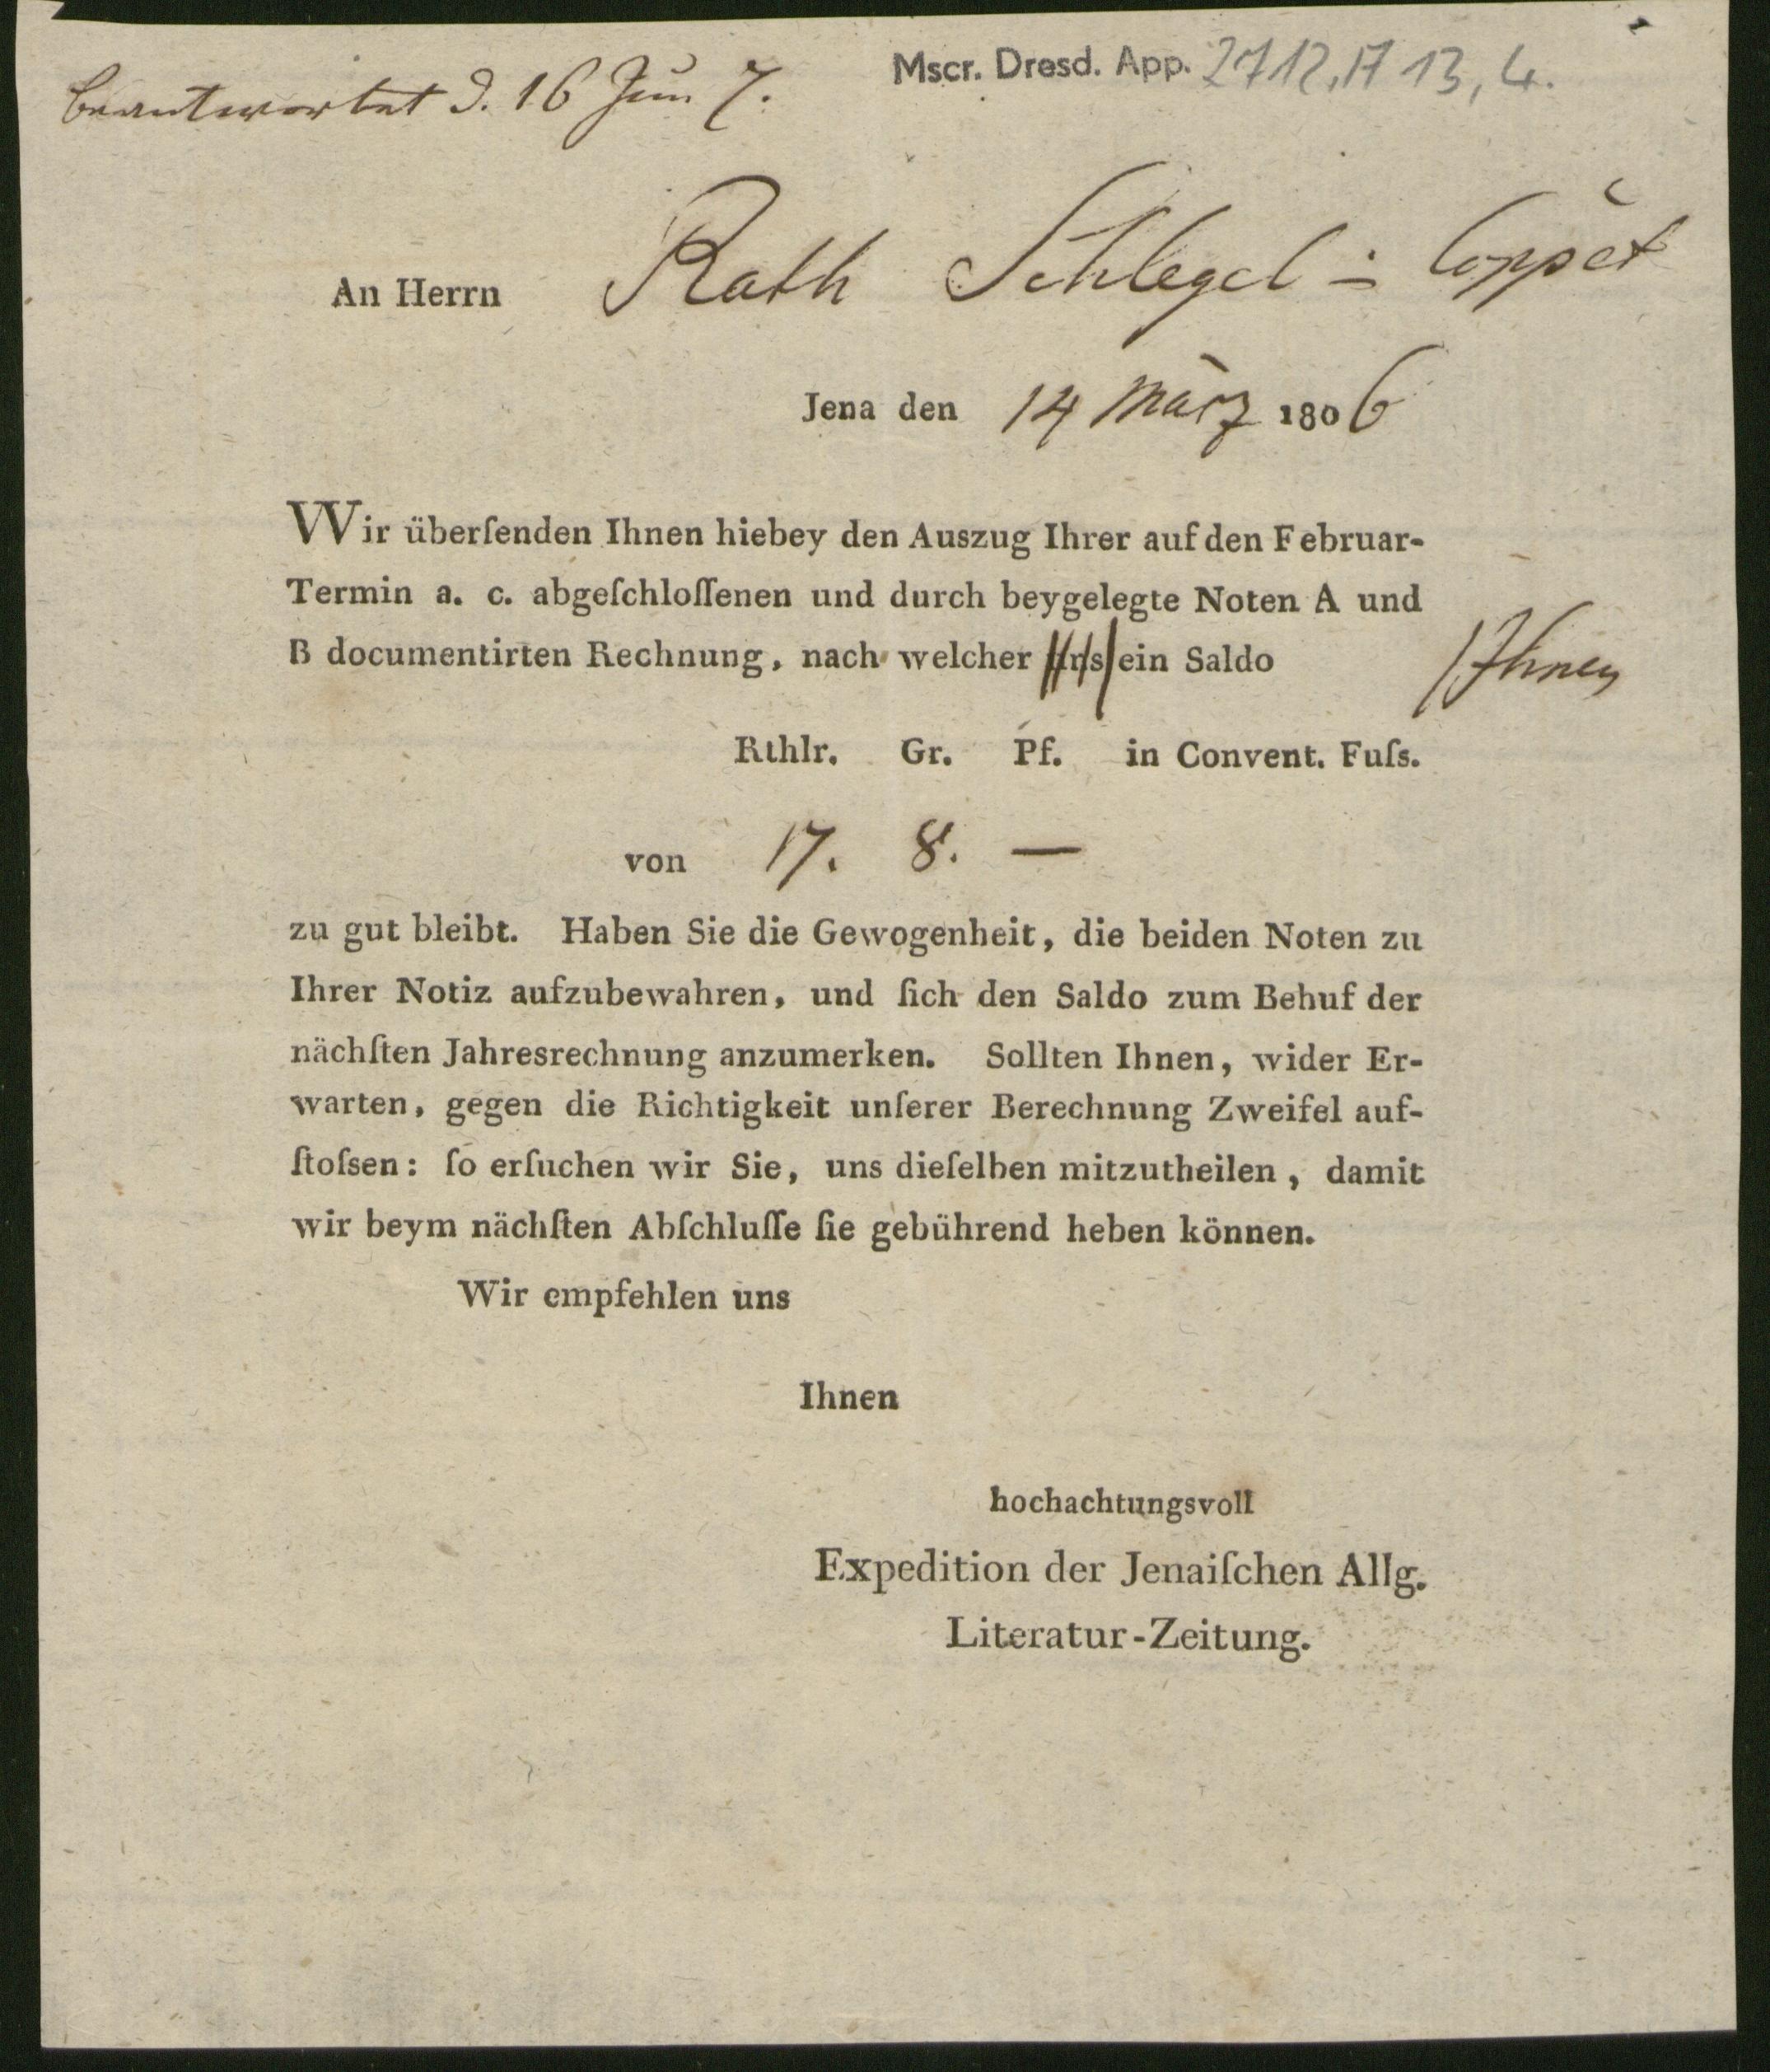 beantwortet d. 16 Jun 7.
Mscr. Dresd. App. 2712, A 13, 4.
An Herrn Rath Schlegel in Coppet
Jena den 14 März 1806
Wir überſenden Ihnen hiebey den Auszug Ihrer auf den Februar-
Termin a. c. abgeſchloſſenen und durch beygelegte Noten A und
B documentirten Rechnung, nach welcher uns ein Saldo
Ihnen
Rthlr. Gr. Pf. in Convent. Fuſs.
von 17. 8. —
zu gut bleibt. Haben Sie die Gewogenheit, die beiden Noten zu
Ihrer Notiz aufzubewahren, und ſich den Saldo zum Behuf der
nächſten Jahresrechnung anzumerken. Sollten Ihnen, wider Er-
warten, gegen die Richtigkeit unſerer Berechnung Zweifel auf-
ſtoſsen: ſo erſuchen wir Sie, uns dieſelben mitzutheilen, damit
wir beym nächſten Abſchluſſe ſie gebührend heben können.
Wir empfehlen uns
Ihnen
hochachtungsvoll
Expedition der Jenaiſchen Allg.
Literatur-Zeitung.